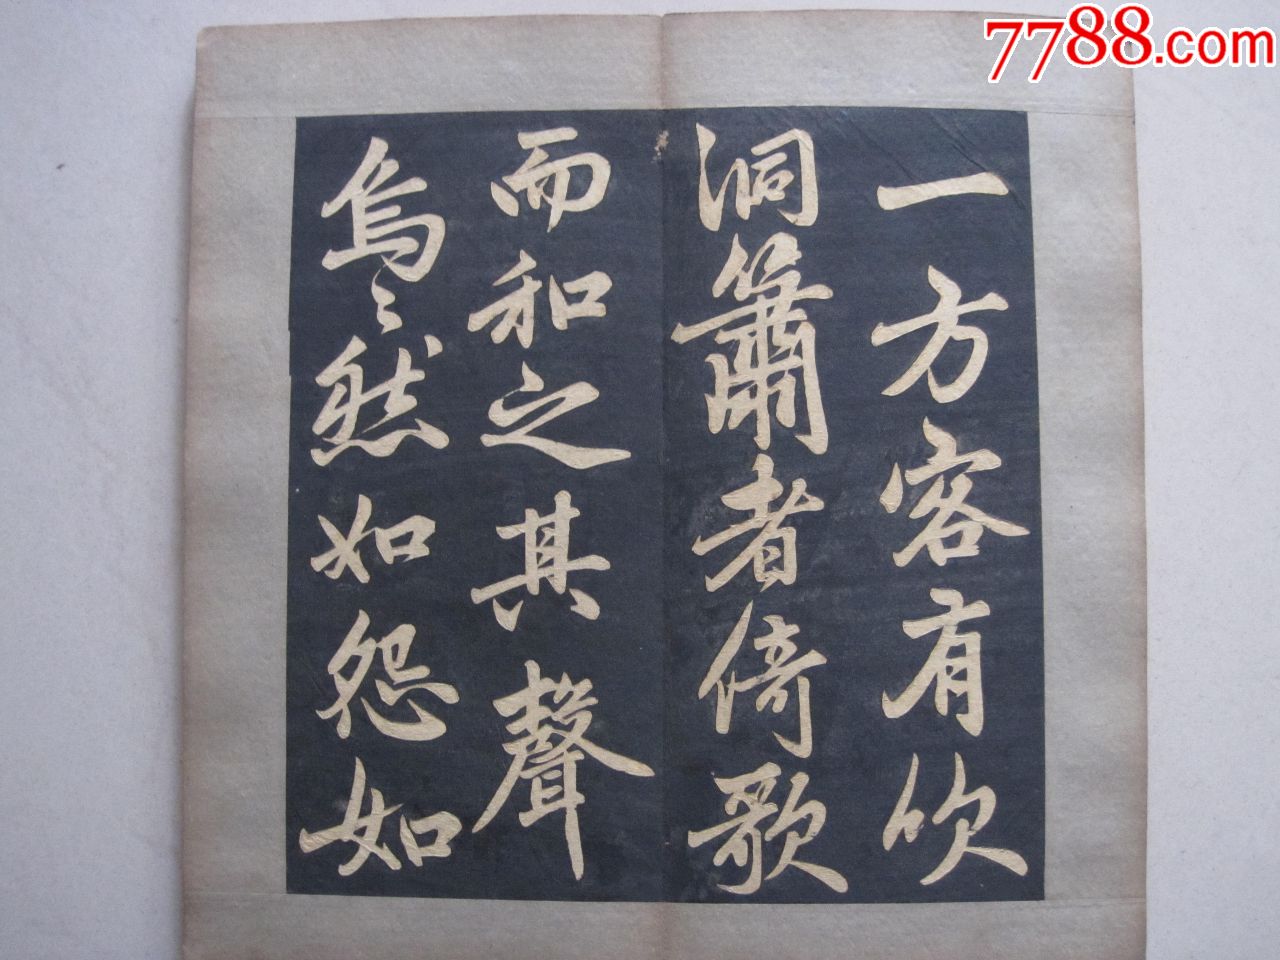 一方客有吹
洞簫者倚歌
而和之其聲
烏〻然如怨如
7788.com